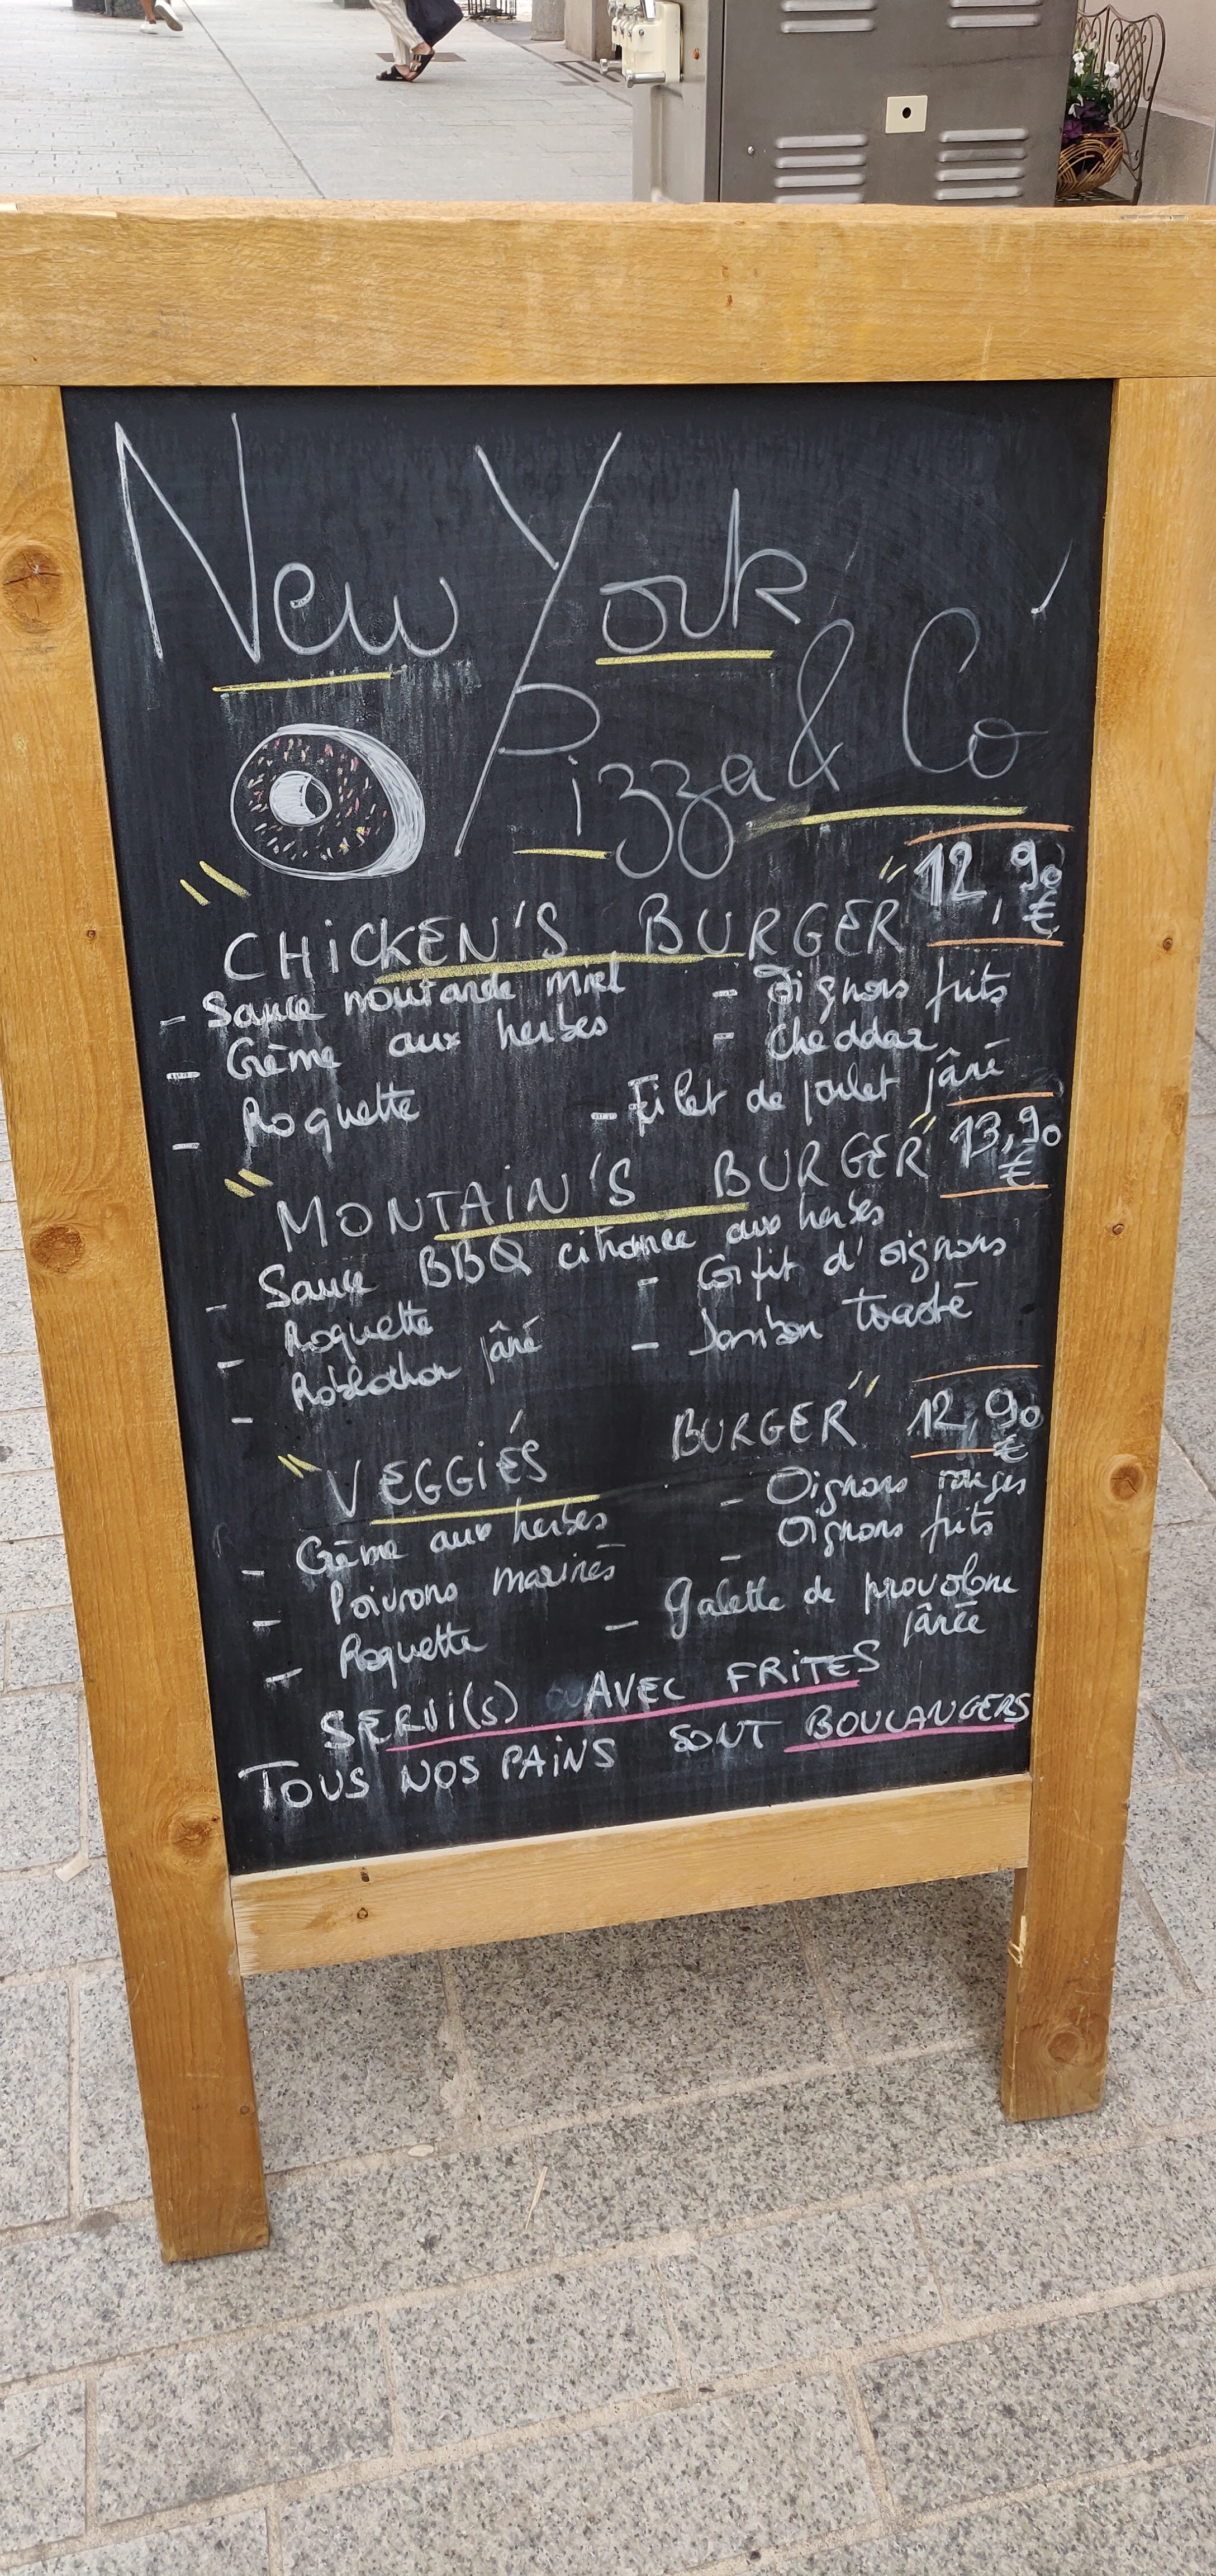 New York
Pizza & Co'
"CHiCKEN'S BURGER" 12,90 €
- Sauce moutarde miel - Oignons frits
- Crème aux herbes - cheddar
- Roquette - Filet de poulet pâné
"MONTAiN'S BURGER" 13,90 €
- Sauce BBQ citronnée aux herbes
- Roquette - Confit d'oignons
- Roblochon pâné - Jambon toasté
"VEGGiE'S BURGER" 12,90 €
- Crème aux herbes - Oignons rouges
- Poivrons marinés - Oignons frits
- Roquette - Galette de provolone pânée
SERVi(S) AVEC FRITES
TOUS NOS PAiNS SONT BOULANGERS